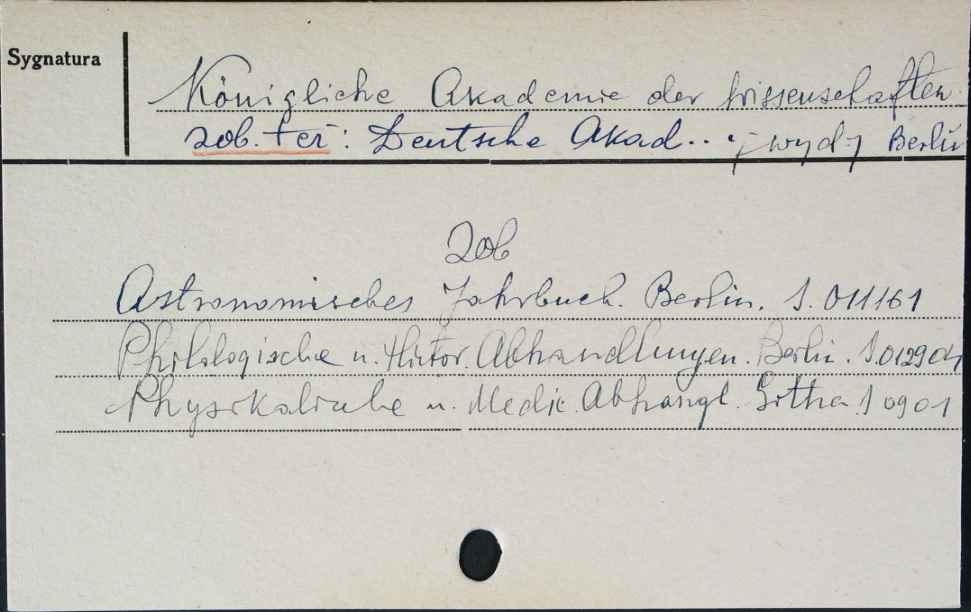 Sygnatura
Königliche Akademie der Wissenschaften
zob. też: Deutsche Akad... ; wyd-y Berlin
Zob
Astronomisches Jahrbuch. Berlin. S. 011161
Philologische u. Histor. Abhandlungen. Berlin. S.012904
Physikalische u. Medic. Abhangl. Gotha. S 0901